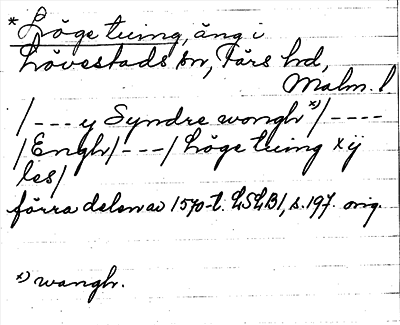 * Löge tuing, äng i
Lövestads sn, Färs hd,
Malm. l
/---y Syndre wongh *)/----
/Engh/---/ Löge tuing xij
les/
förra delen av 1570-t. LSLB1, s. 197. orig.
*) wangh.